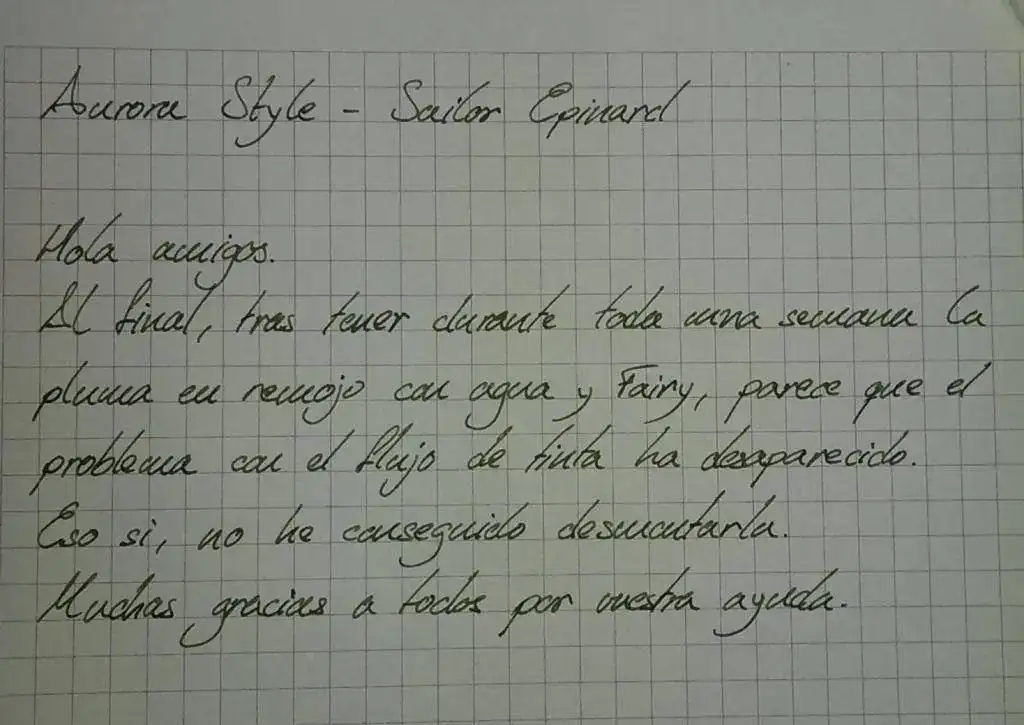 Aurora Style - Sailor Epinard
Hola amigos.
Al final, tras tener durante toda una semana la
pluma en remojo con agua y Fairy, parece que el
problema con el flujo de tinta ha desaparecido.
Eso si, no he conseguido desmontarla.
Muchas gracias a todos por vuestra ayuda.